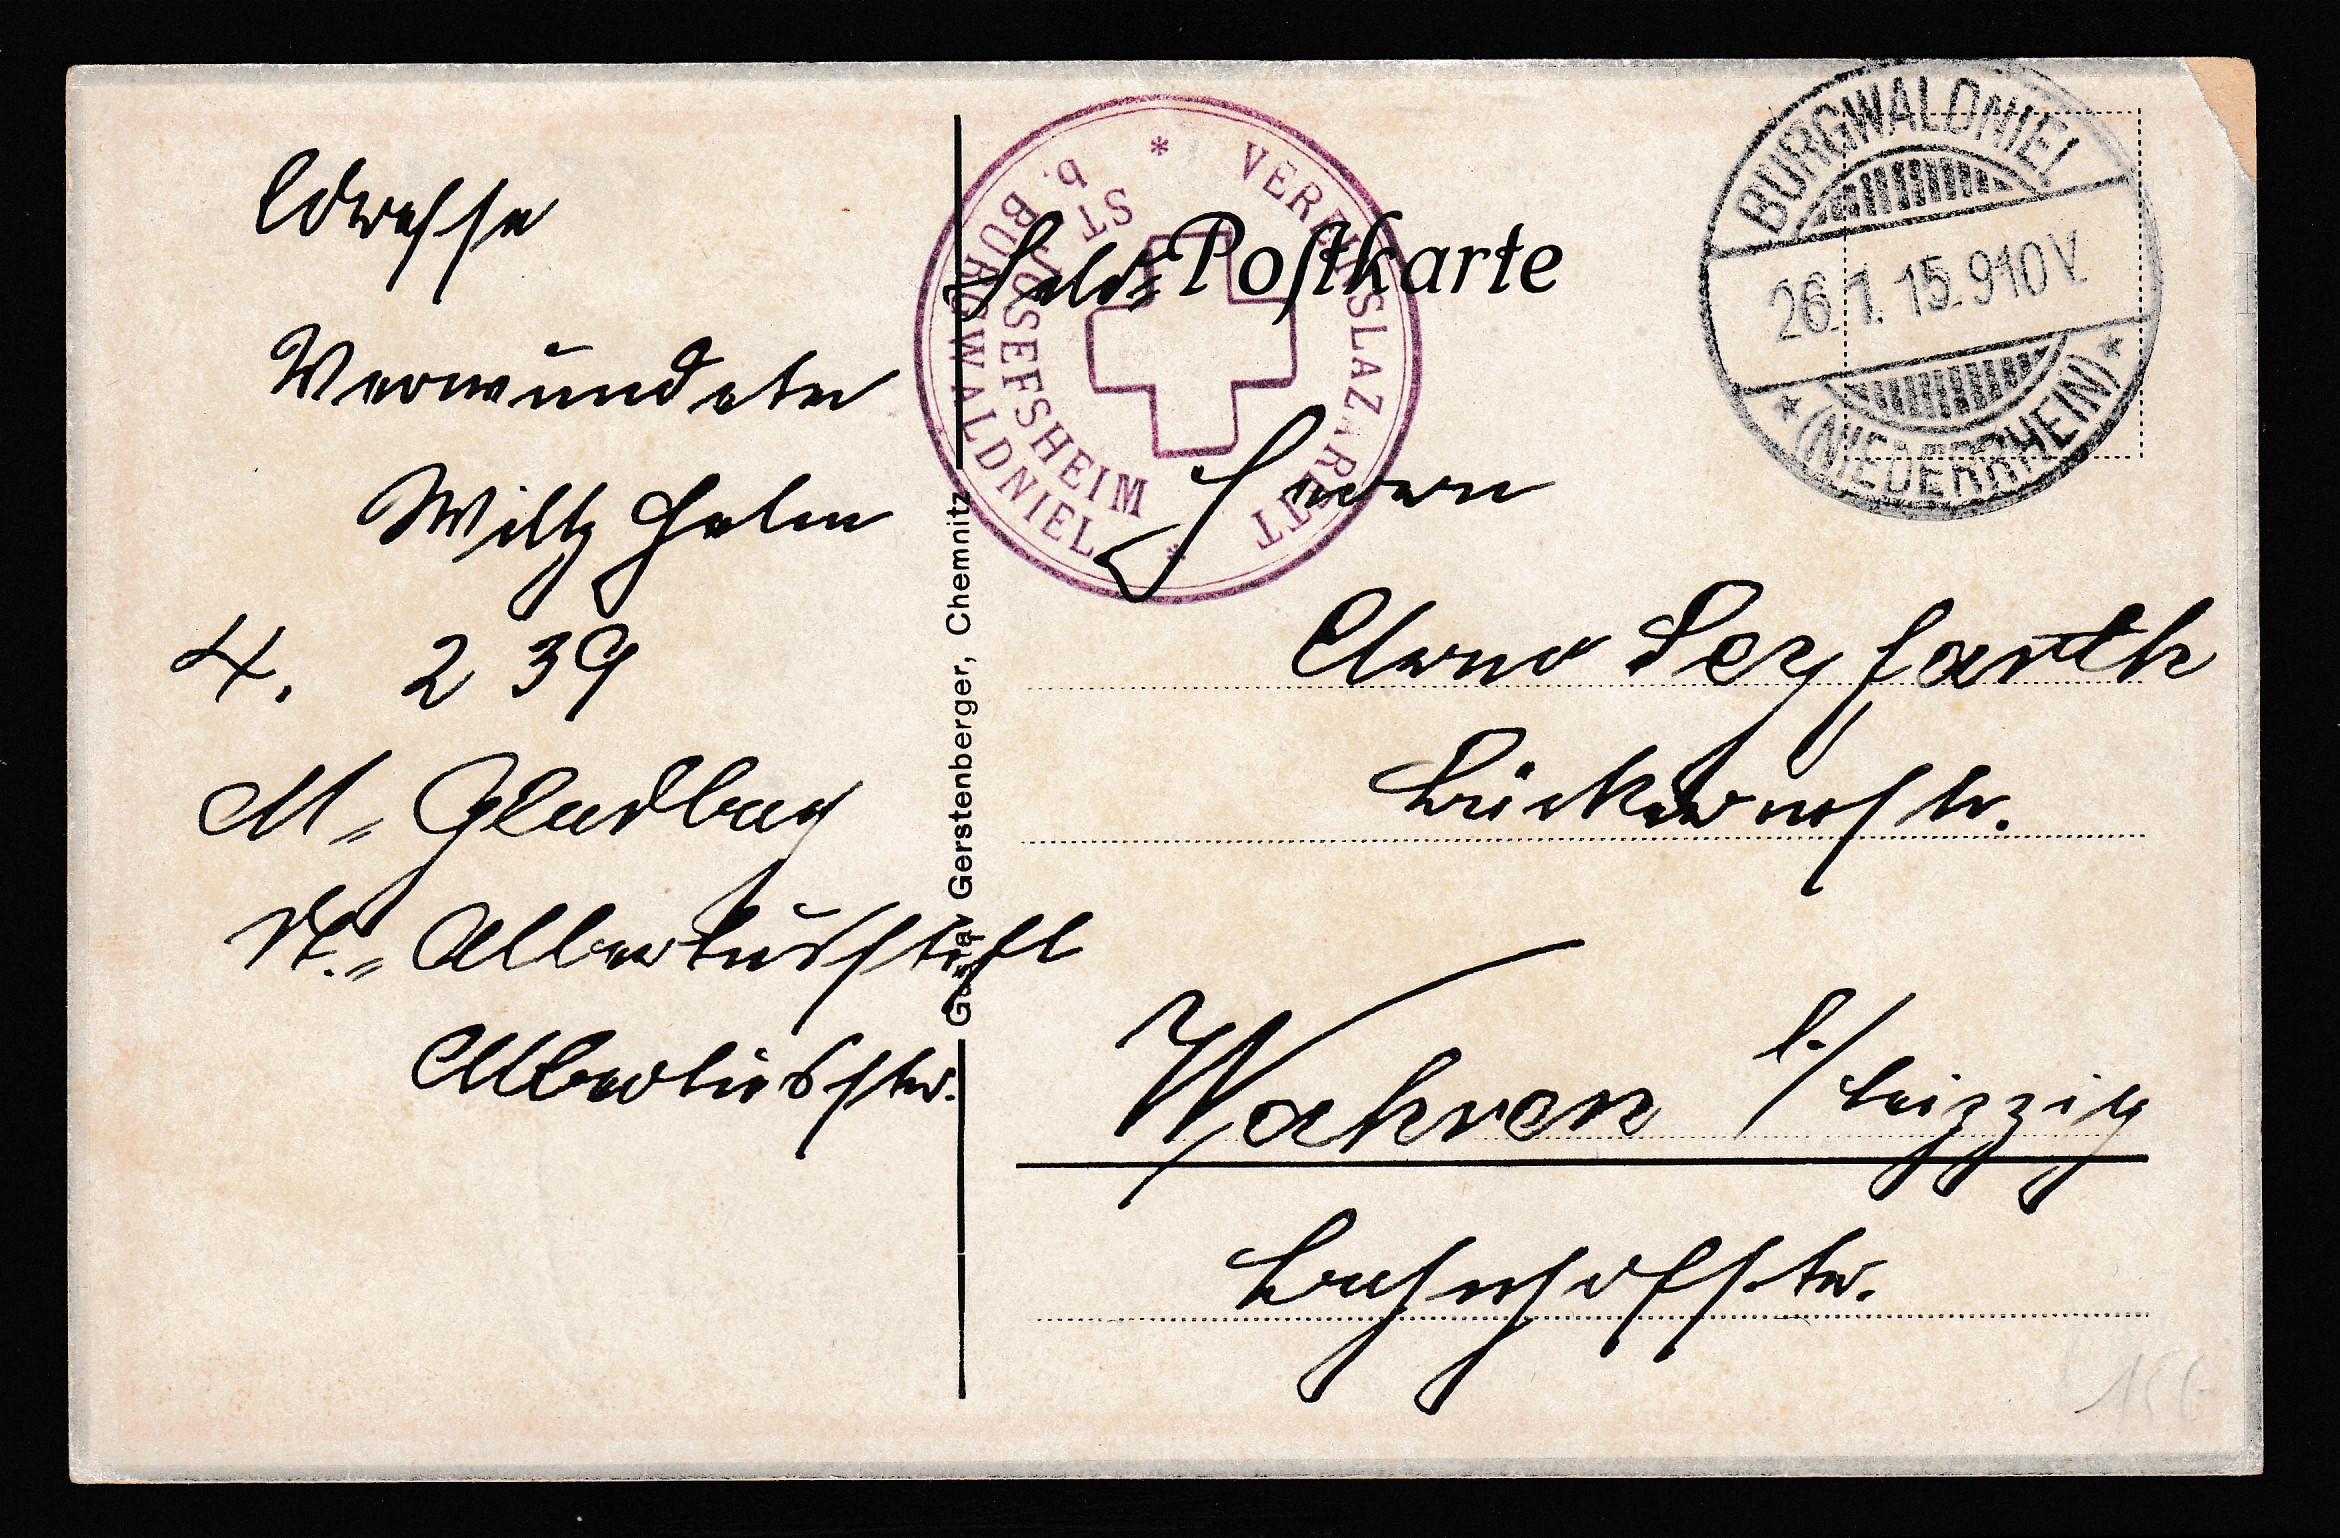 Adresse
Verwundeter
Wilhelm
4. 239
M. Gladbach
Albertusstift
Albertusstr.
Gustav Gerstenberger, Chemnitz
* VEREINSLAZARETT *
ST. JOSEFSHEIM
b. BURGWALDNIEL
Feld-Postkarte
BURGWALDNIEL
26.1.15.9-10V.
* (NIEDERRHEIN) *
Herrn
Arno Seyfarth
Bäckermstr.
Wahren b./Leipzig
Bahnhofstr.
156